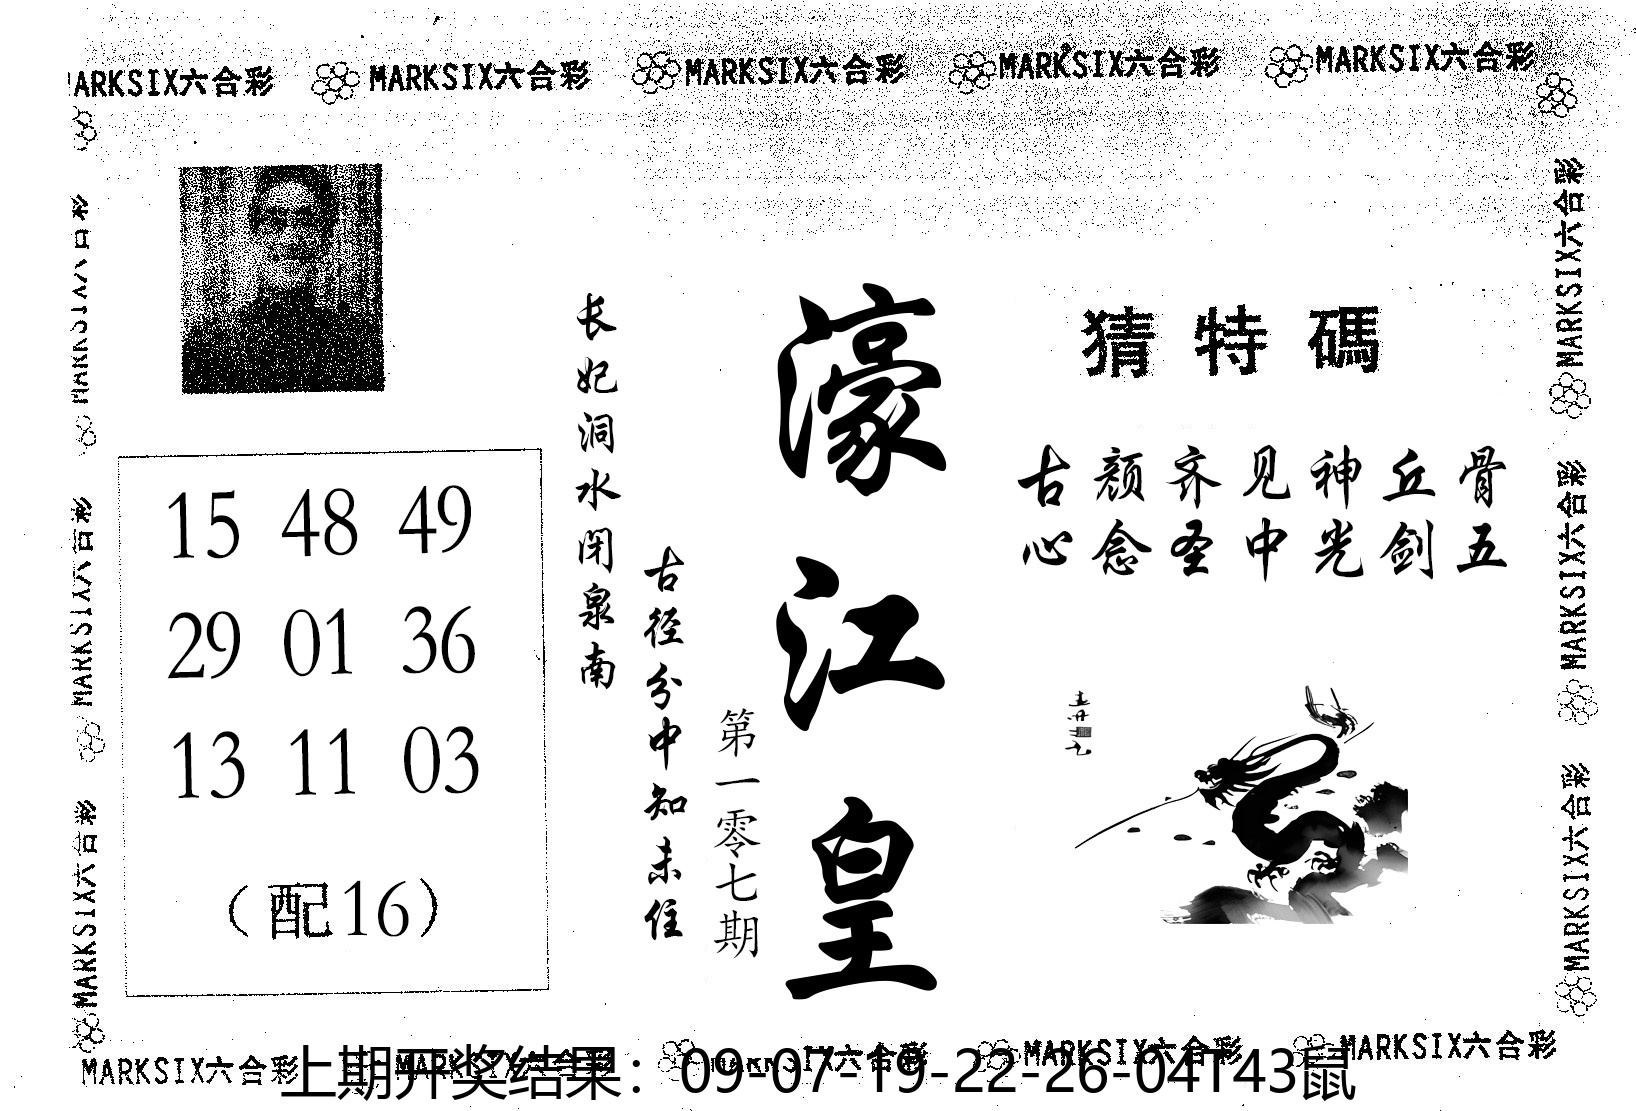 MARKSIX六合彩 MARKSIX六合彩 MARKSIX六合彩 MARKSIX六合彩 MARKSIX六合彩
猜特碼
古颜齐见神丘骨
心念圣中光剑五
濠江皇
第一零七期
古径分中知未住
长妃洞水闭泉南
15 48 49
29 01 36
13 11 03
（配16）
MARKSIX六合彩 MARKSIX六合彩 MARKSIX六合彩
MARKSIX六合彩 MARKSIX六合彩 MARKSIX六合彩
MARKSIX六合彩 MARKSIX六合彩 MARKSIX六合彩 MARKSIX六合彩 MARKSIX六合彩
上期开奖结果：09-07-19-22-26-04T43鼠